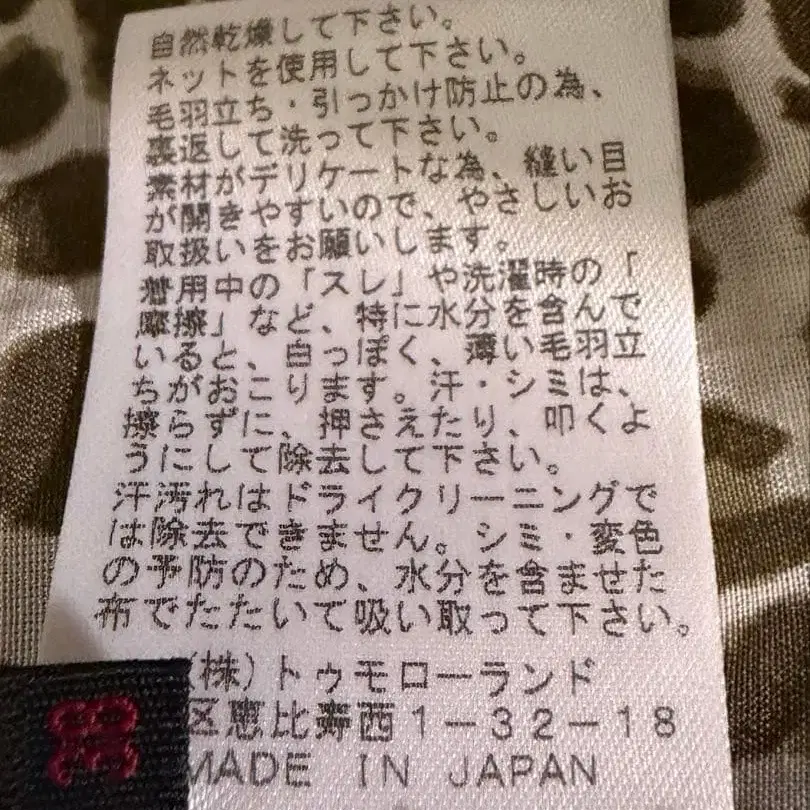 自然乾燥して下さい。
ネットを使用して下さい。
毛羽立ち・引っかけ防止の為、
裏返して洗って下さい。
素材がデリケートな為、縫い目
が開きやすいので、やさしいお
取扱いをお願いします。
着用中の「スレ」や洗濯時の「
摩擦」など、特に水分を含んで
いると、白っぽく、薄い毛羽立
ちがおこります。汗・シミは、
擦らずに、押さえたり、叩くよ
うにして除去して下さい。
汗汚れはドライクリーニングで
は除去できません。シミ・変色
の予防のため、水分を含ませた
布でたたいて吸い取って下さい。
(株)トゥモローランド
区恵比寿西1-32-18
MADE IN JAPAN